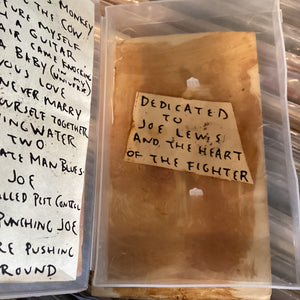 MONKEY
THE COW
MYSELF
AIR GUITAR
CAN'T KNOCKING
A BABY
LOVE
NEVER MARRY
YOURSELF TOGETHER
WATER
TWO
MAN BLUES
JOE
PEST CONTROL
PUNCHING JOE
PUSHING
ROUND
DEDICATED
TO
JOE LEWIS
AND THE HEART
OF THE FIGHTER